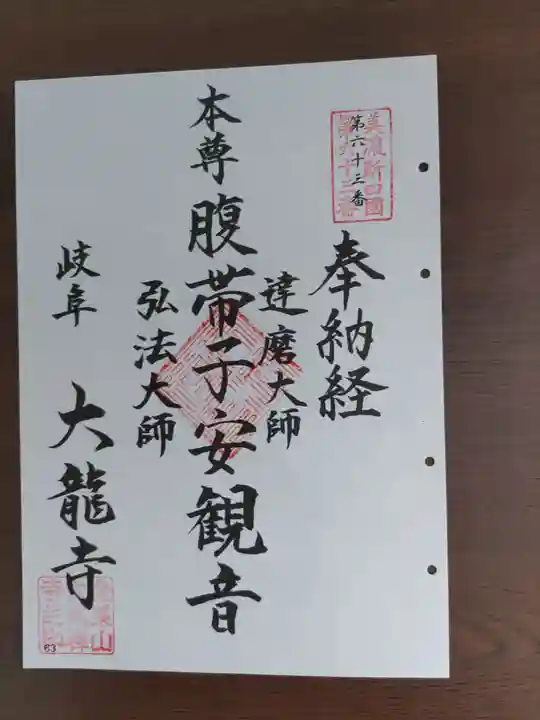 第六十三番
美濃新四國
第六十三番
奉納経
達磨大師
本尊腹帯子安観音
弘法大師
岐阜 大龍寺
63